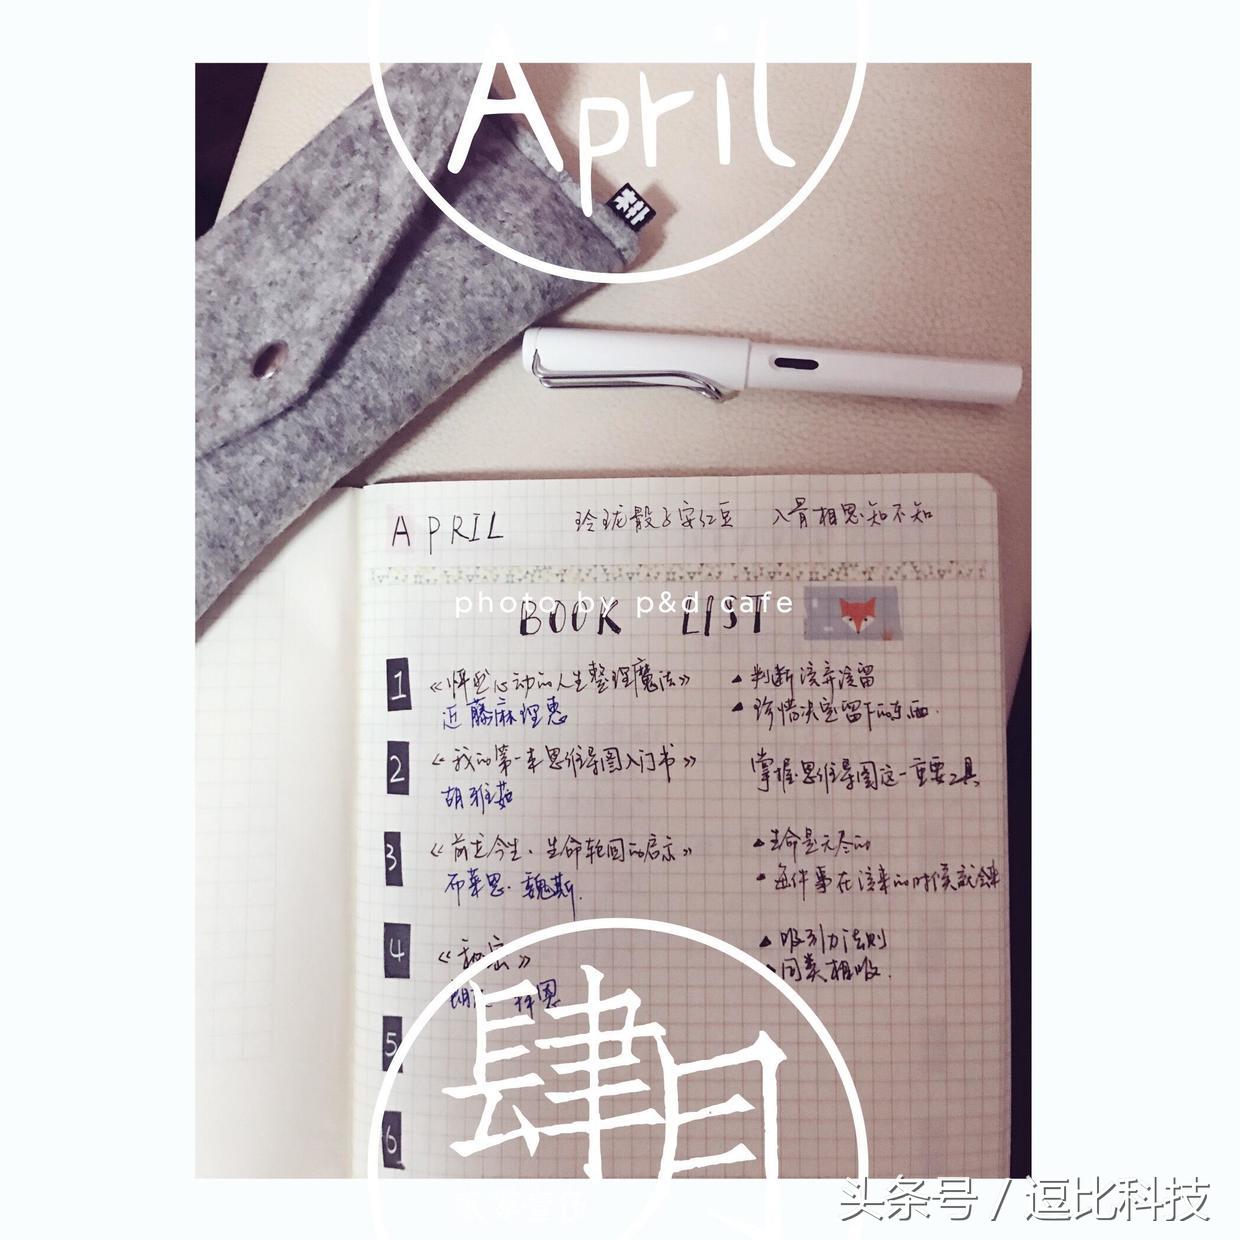 April
朴
APRIL 玲珑骰子安红豆 入骨相思知不知
photo by p&d cafe
BOOK LIST
1 《怦然心动的人生整理魔法》 ▲判断该弃该留
近藤麻理惠 ▲珍惜决定留下的东西.
2 《我的第一本思维导图入门书》 掌握思维导图这一重要工具
胡雅茹
3 《前世今生·生命轮回的启示》 ▲生命是无尽的
布莱恩·魏斯. ▲每件事在该来的时候就会来
4 《秘密》 ▲吸引力法则
拜恩 ▲同类相吸.
5
6
肆月
头条号 / 逗比科技